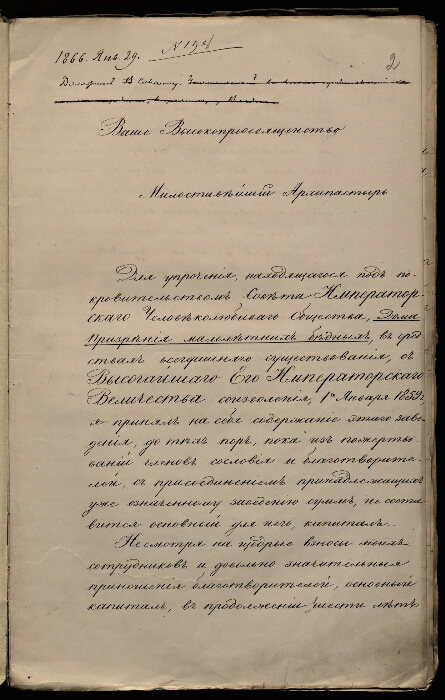 1866. Янв. 29.
2
Ваше Высокопреосвященство
Милостивѣйшій Архипастырь
Для упроченія, находящагося подъ по-
кровительствомъ Совѣта Император-
скаго Человѣколюбиваго Общества, Дома
Призрѣнія малолѣтнихъ бѣдныхъ, въ сред-
ствахъ всегдашняго существованія, съ
Высочайшаго Его Императорскаго
Величества соизволенія, 1го Января 1859 г.
я принялъ на себя содержаніе этого заве-
денія, до тѣхъ поръ, пока изъ пожертво-
ваній членовъ сословія и благотворите-
лей, съ присоединеніемъ принадлежащихъ
уже означенному заведенію суммъ, не соста-
вится основный для него, капиталъ.
Не смотря на щедрые взносы моихъ
сотрудниковъ и довольно значительныя
приношенія благотворителей, основный
капиталъ, въ продолженіи шести лѣтъ